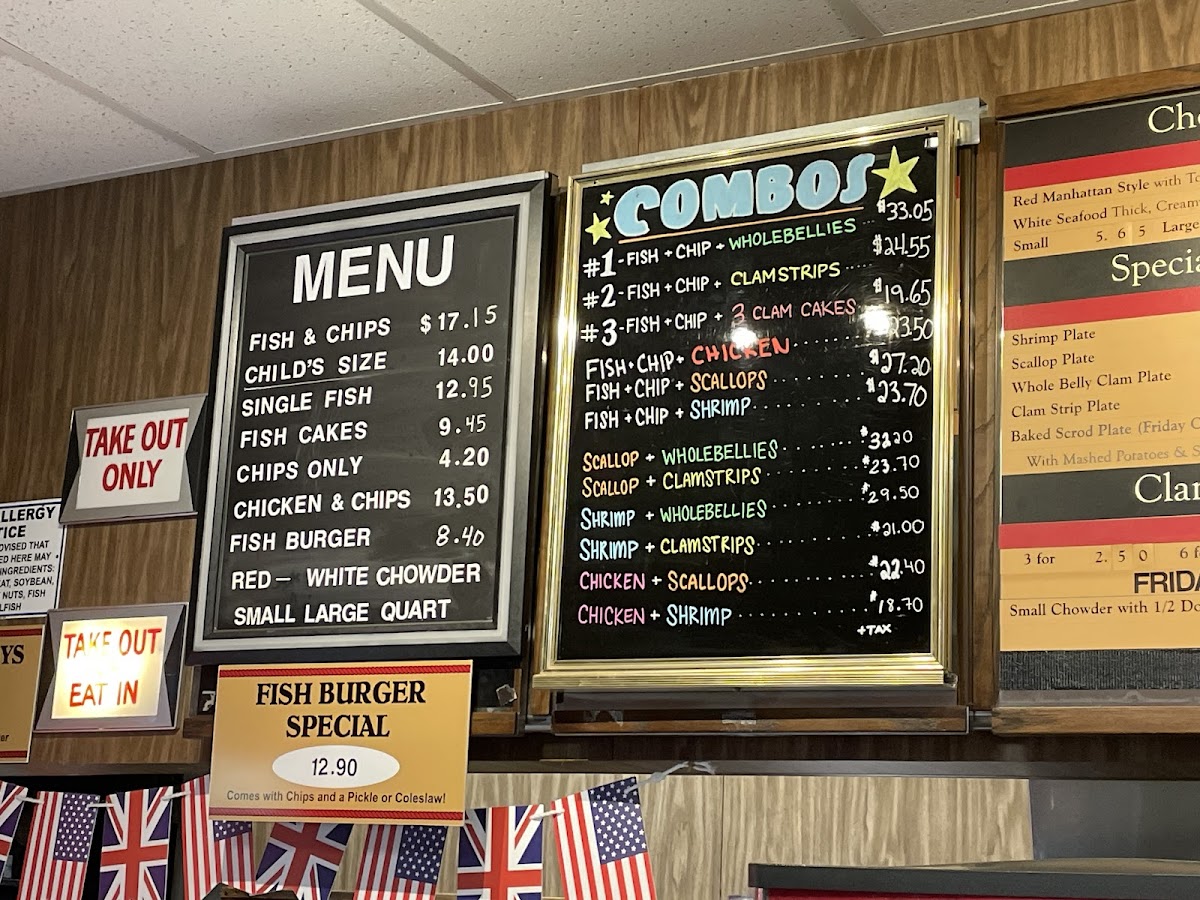 TAKE OUT
ONLY
LLERGY
TICE
DVISED THAT
ED HERE MAY
INGREDIENTS:
EAT, SOYBEAN,
NUTS, FISH
LFISH
TAKE OUT
EAT IN
YS
MENU
FISH & CHIPS $17.15
CHILD'S SIZE 14.00
SINGLE FISH 12.95
FISH CAKES 9.45
CHIPS ONLY 4.20
CHICKEN & CHIPS 13.50
FISH BURGER 8.40
RED — WHITE CHOWDER
SMALL LARGE QUART
FISH BURGER
SPECIAL
12.90
Comes with Chips and a Pickle or Coleslaw!
COMBOS
#1-FISH + CHIP + WHOLEBELLIES $33.05
#2-FISH + CHIP + CLAMSTRIPS $24.55
#3-FISH + CHIP + 3 CLAM CAKES $19.65
FISH+CHIP+ CHICKEN 23.50
FISH+CHIP + SCALLOPS $27.20
FISH+CHIP + SHRIMP $23.70
SCALLOP + WHOLEBELLIES $32.20
SCALLOP + CLAMSTRIPS $23.70
SHRIMP + WHOLEBELLIES $29.50
SHRIMP + CLAMSTRIPS $21.00
CHICKEN + SCALLOPS $22.40
CHICKEN + SHRIMP $18.70
+TAX
Cho
Red Manhattan Style with To
White Seafood Thick, Cream
Small 5.65 Large
Specia
Shrimp Plate
Scallop Plate
Whole Belly Clam Plate
Clam Strip Plate
Baked Scrod Plate (Friday O
With Mashed Potatoes & S
Clar
3 for 2.50 6 f
FRIDA
Small Chowder with 1/2 Do